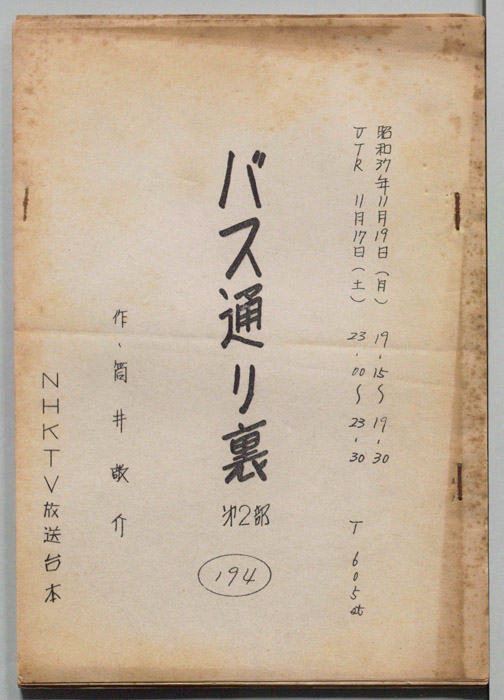 昭和37年11月19日（月） 19.15〜19.30
VTR 11月17日（土） 23.00〜23.30 T605st
バス通り裏
第2部
194
作、筒井敬介
NHKTV放送台本